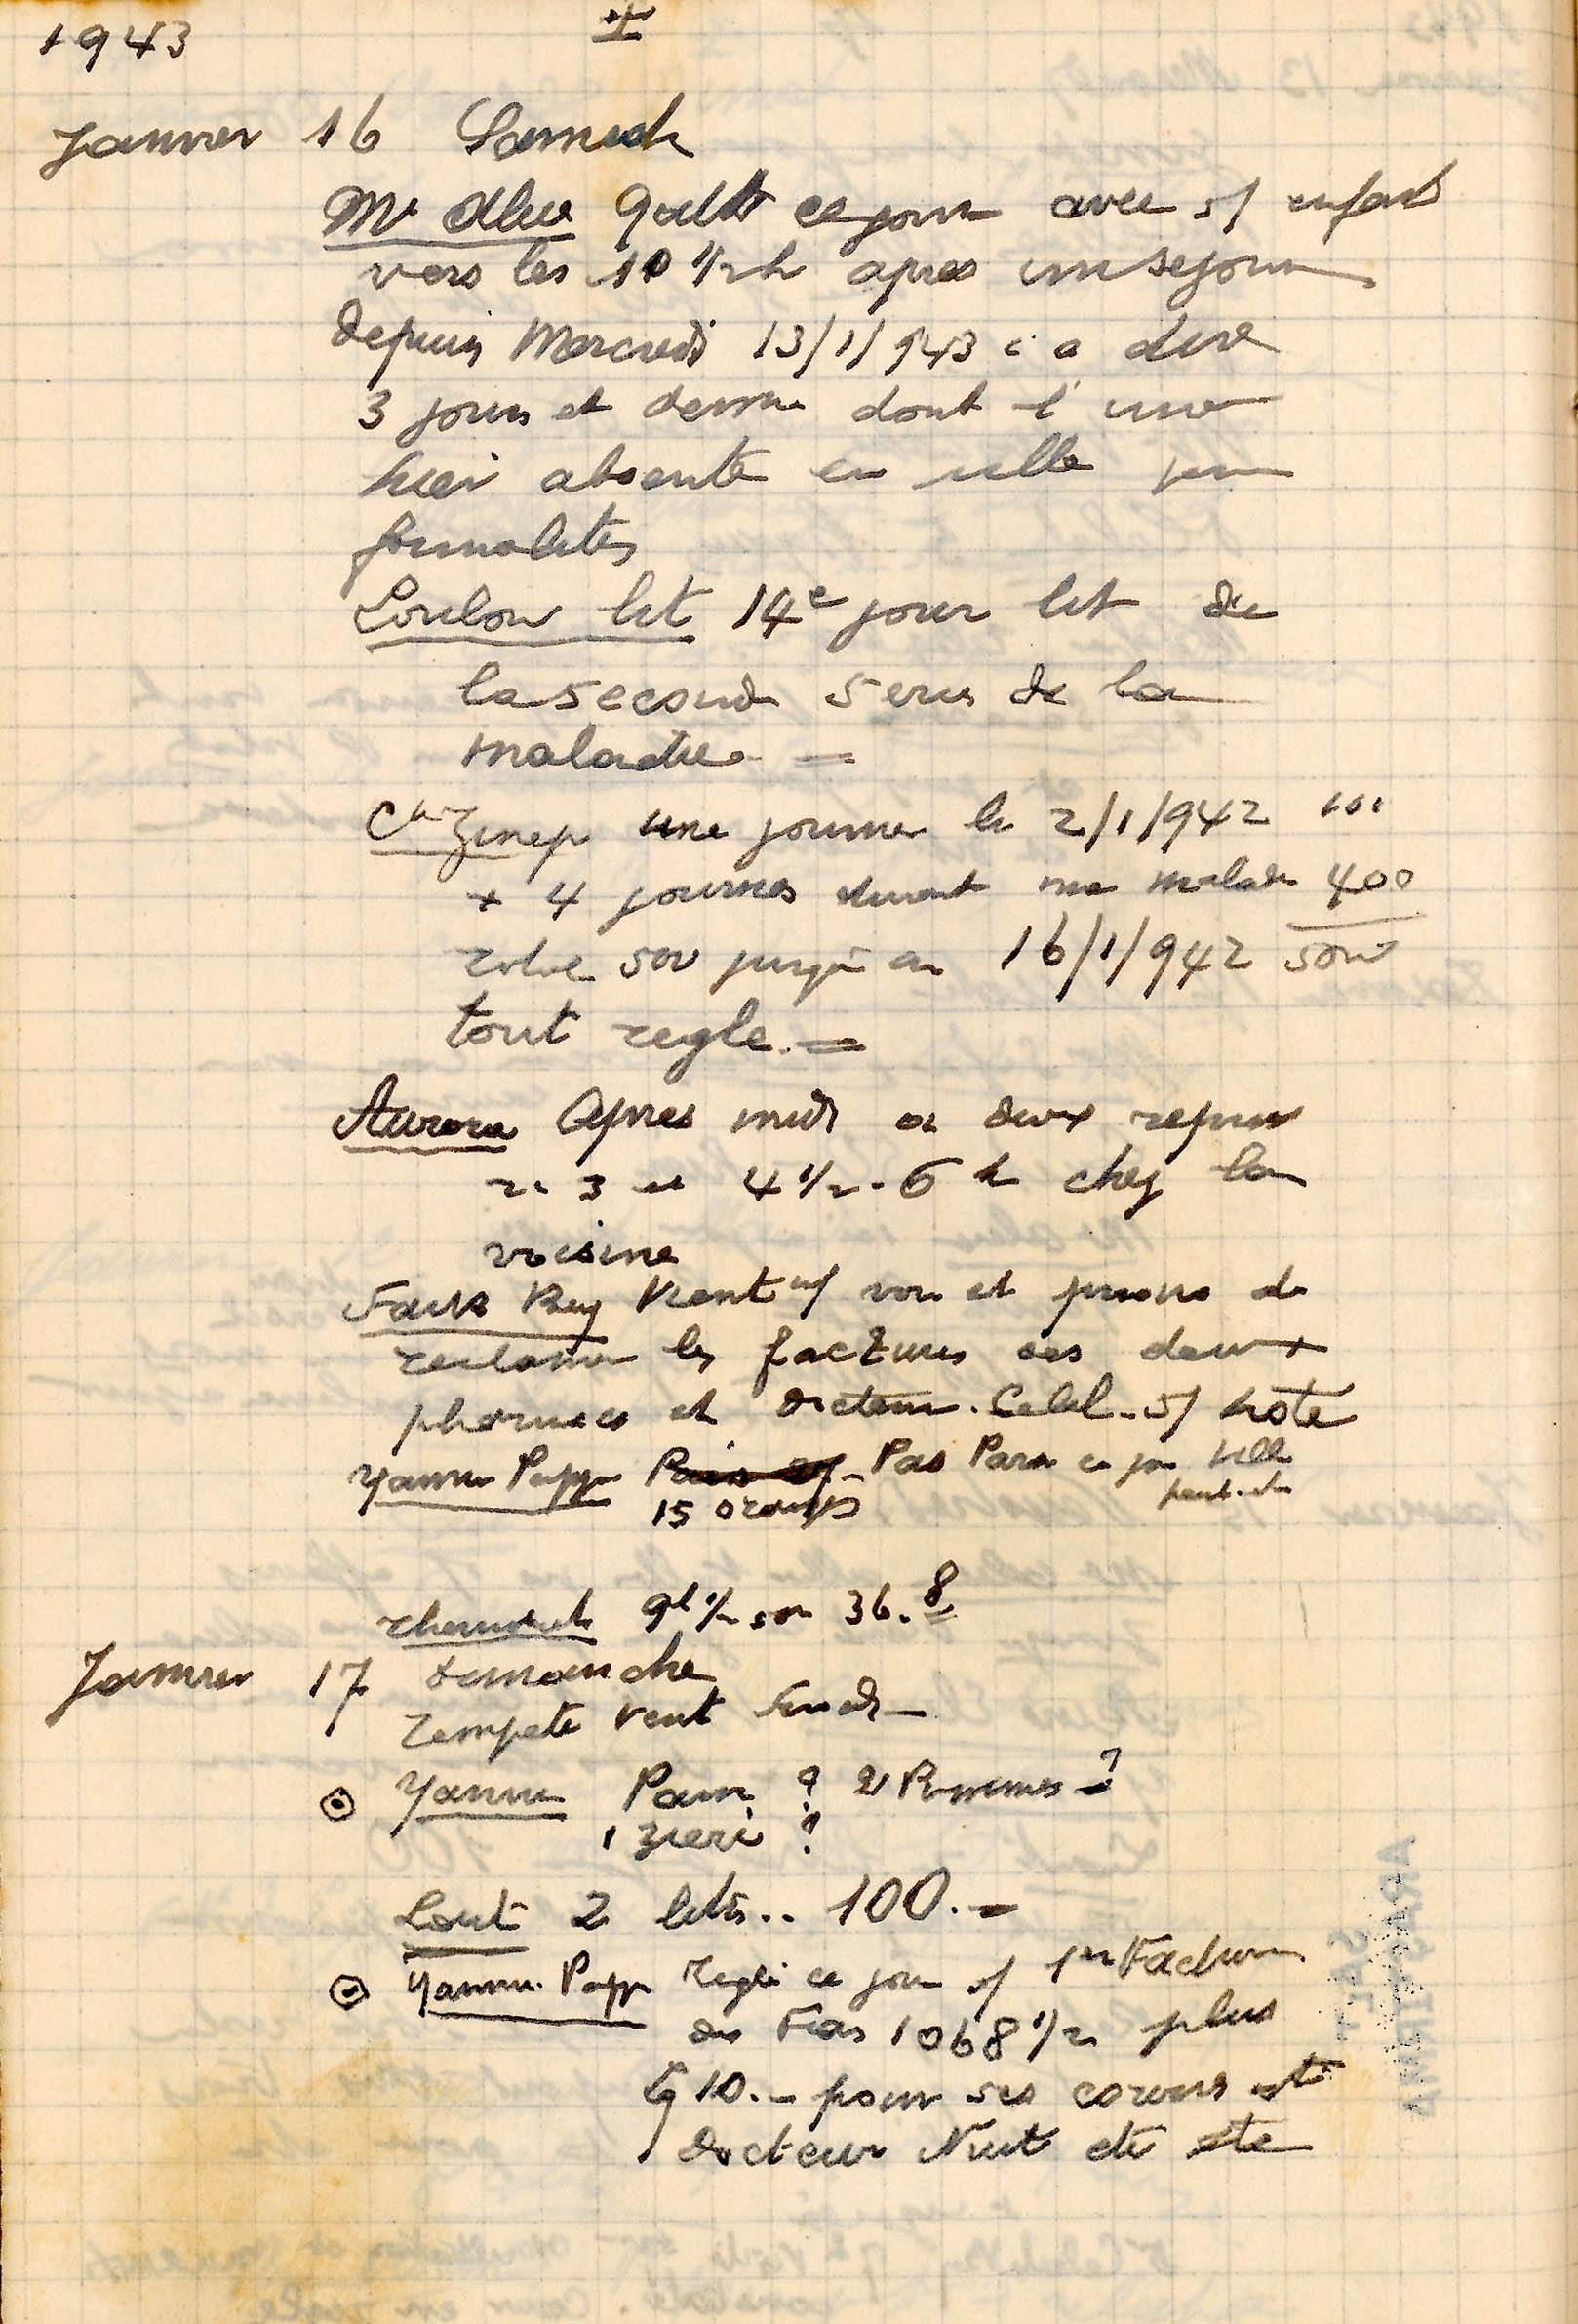 1943
Janvier 16 Samedi
Mr Alice quitte ce jour avec s/ enfants
vers les 10 1/2 h apres un sejour
depuis Mercredi 13/1/943 c a dire
3 jours et demie dont 1 une
hier absente en ville pr
formalites
Loulou lit 14e jour lit de
la seconde serie de la
maladie =
Zinep une journee le 2/1/942 100
+ 4 journes durant ma maladie 400
500 jusqu'au 16/1/942 500
tout regle. =
Aurora Apres midi a deux reprises
2. 3 et 4 1/2 - 6 h chez la
voisine
Faik Bey Vient n/ voir et prions de
reclamer les factures des deux
pharmacies et docteur. Celal. s/ note
Yanni Papp Pas Para ce jour ville
peut-etre
15 oranges
9h 1/2 soir 36.8
Janvier 17 Dimanche
Tempete Vent Sud
Yanni Pain ? 2 Pommes ?
1 ?
Lait 2 lits.. 100.-
Yanni Papp Regle ce jour s/ 1er Facture
de 1068 1/2 plus
10.- pour ses courses
docteur Nuit etc etc